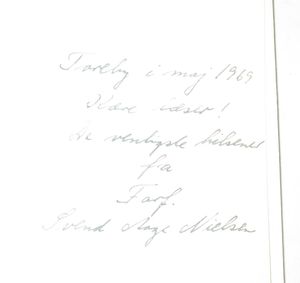 Toreby i maj 1969
Kære læser!
De venligste hilsener
fra
Forf.
Svend Aage Nielsen